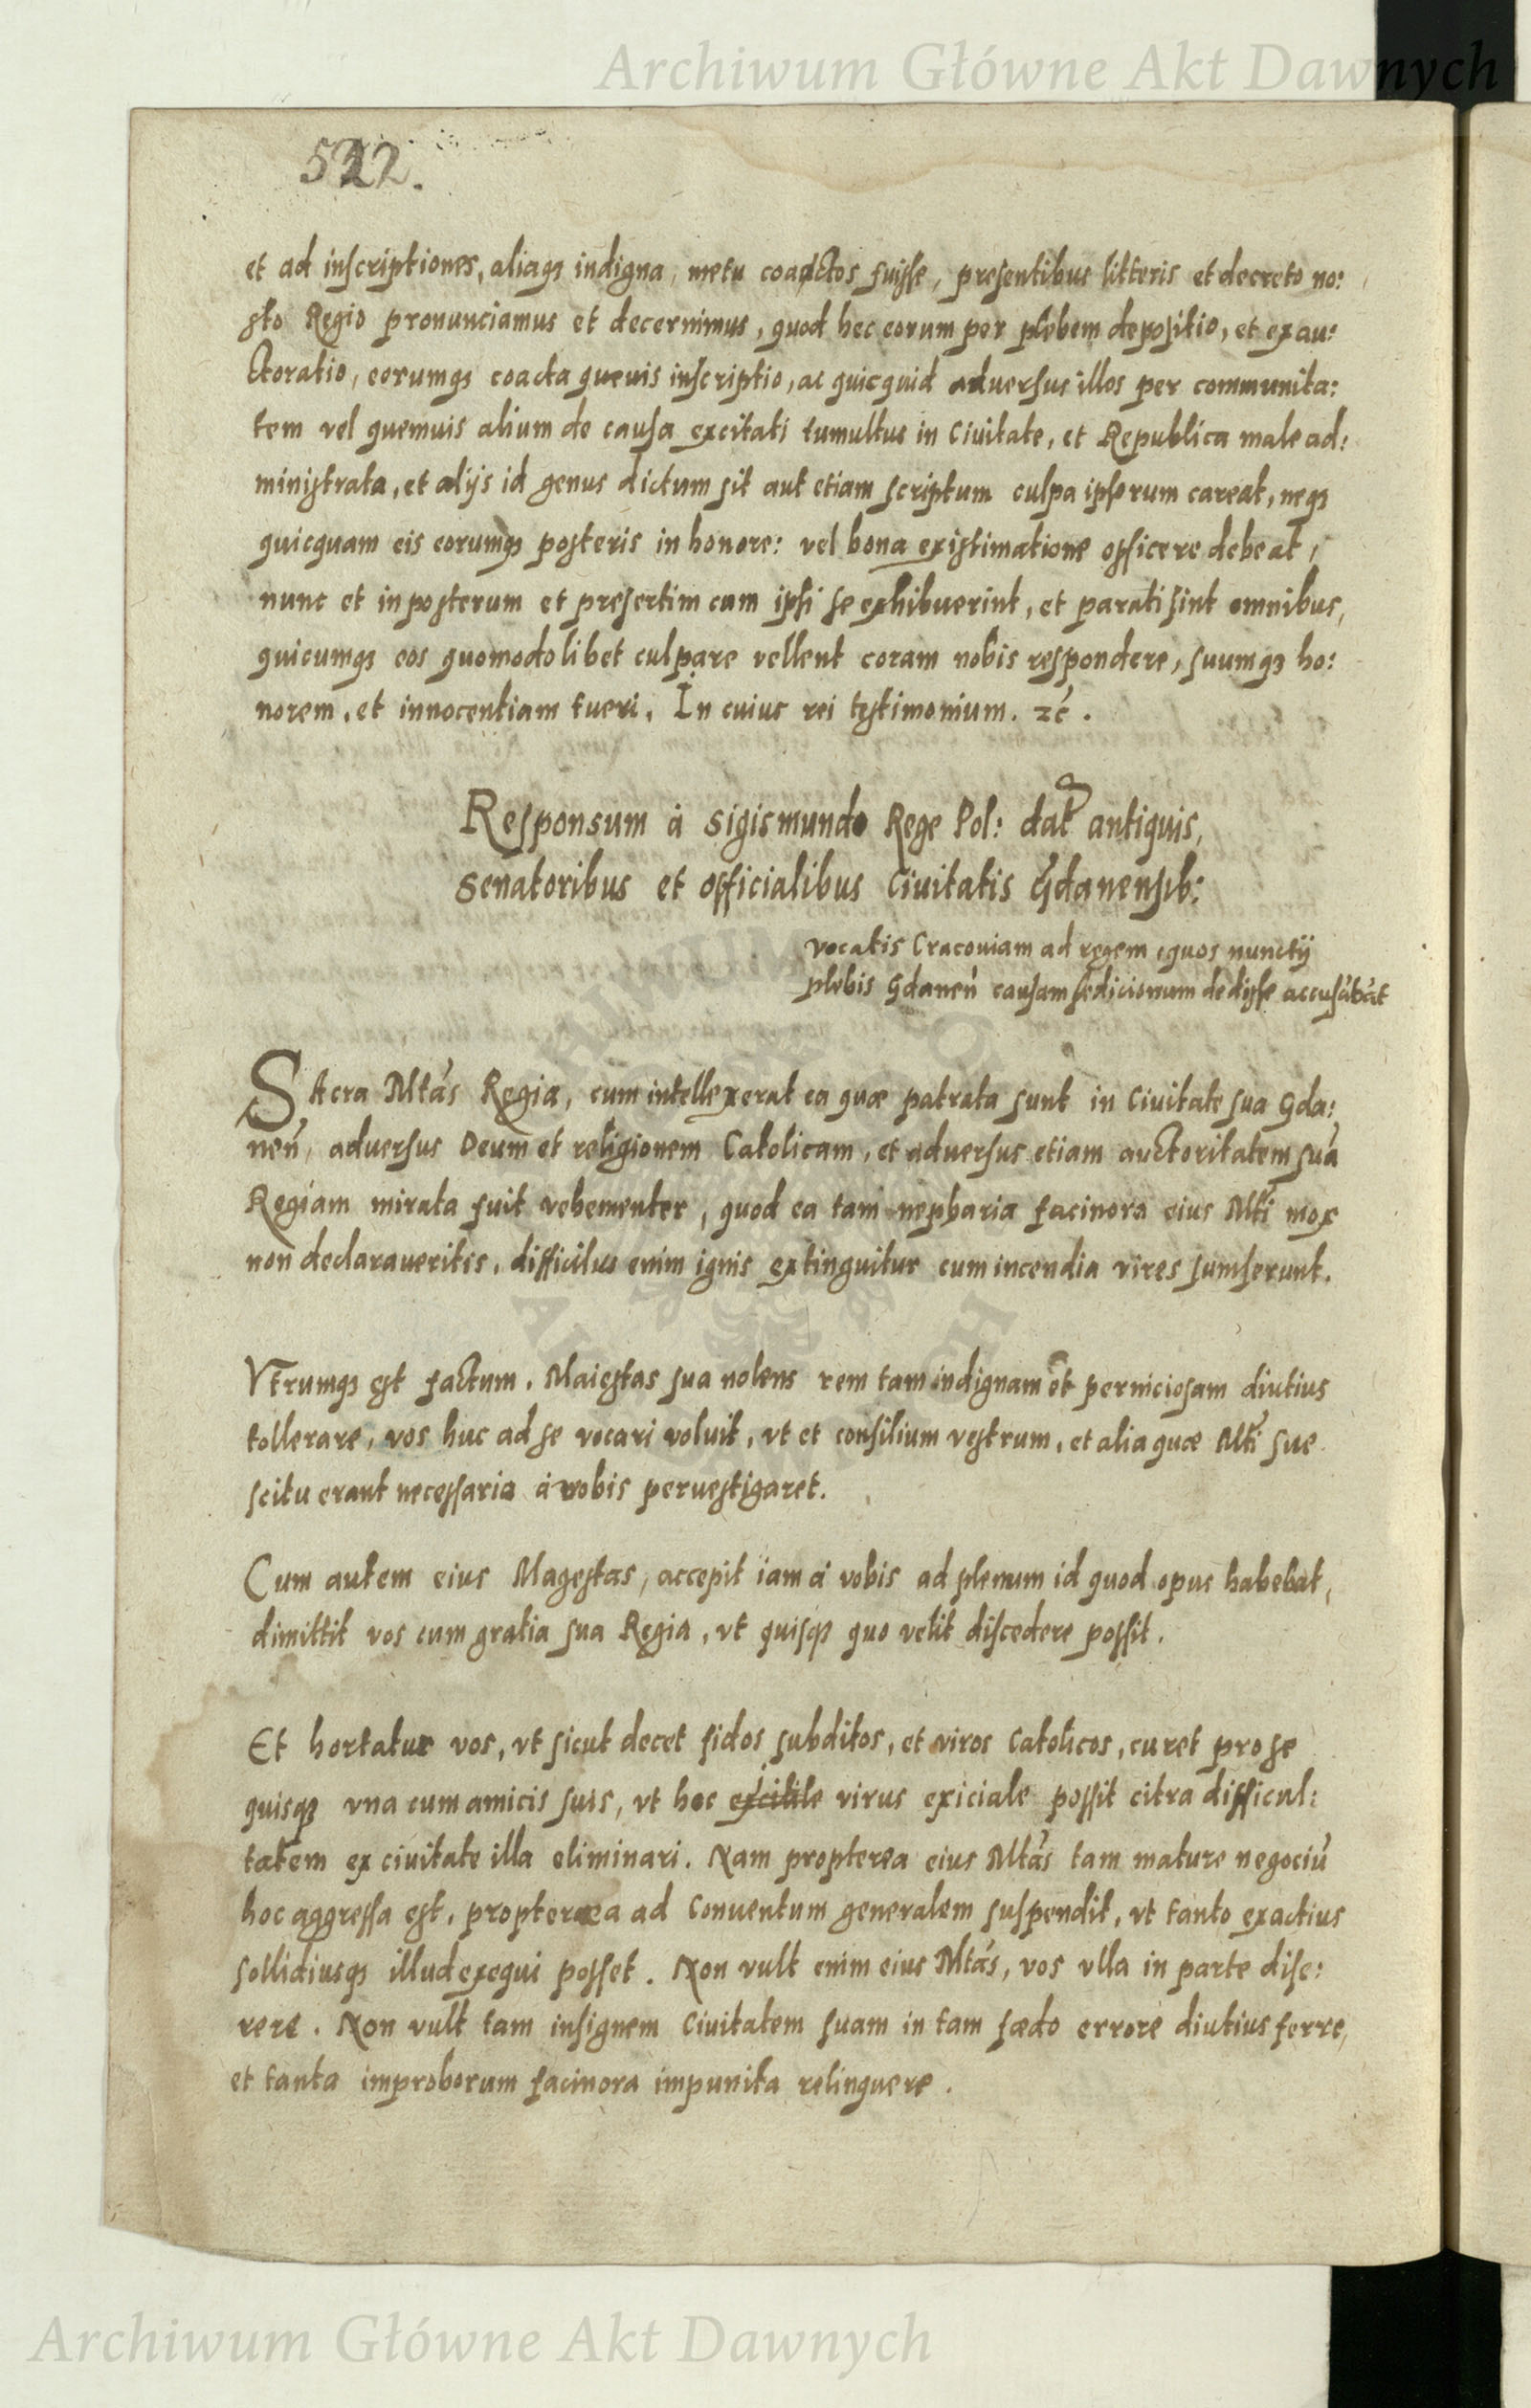 Archiwum Główne Akt Dawnych
522.
et ad inscriptiones, aliaq3 indigna, metu coactos fuisse, presentibus litteris et decreto no:
sto Regio pronunciamus et decernimus, quod hec eorum per plebem depositio, et exau:
ctoratio, eorumq3 coacta queuis inscriptio, ac quicquid aduersus illos per communita:
tem vel quemuis alium de causa excitati tumultus in Ciuitate, et Republica male ad:
ministrata, et alijs id genus dictum sit aut etiam scriptum culpa ipsorum careat, neq3
quicquam eis eorumq3 posteris in honore: vel bona existimatione officere debeat,
nunc et in posterum et presertim cum ipsi se exhibuerint, et parati sint omnibus,
quicumq3 eos quomodolibet culpare vellent coram nobis respondere, suumq3 ho:
norem, et innocentiam tueri. In cuius rei testimonium. zć.
Responsum à Sigismundo Rege Pol: dat antiquis,
Senatoribus et officialibus Ciuitatis Gdanensib:
vocatis Cracouiam ad regem quos nunctij
plebis Gdaneń causam sedicionum dedisse accusabāt
Sacra Mtás Regia, cum intellexerat ea quæ patrata sunt in Ciuitate sua Gda:
neń, aduersus Deum et religionem Catolicam, et aduersus etiam auctoritatem suā
Regiam mirata fuit vehementer, quod ea tam nepharia facinora eius Mti mox
non declaraueritis, difficilius enim ignis extinguitur cum incendia vires sumserunt.
Vtrumq3 est factum. Maiestas sua nolens rem tam indignam et perniciosam diutius
tollerare, vos huc ad se vocari voluit, vt et consilium vestrum, et alia quæ Mti sue
scitu erant necessaria à vobis peruestigaret.
Cum autem eius Magestas, accepit iam à vobis ad plenum id quod opus habebat,
dimittit vos cum gratia sua Regia, vt quisq3 quo velit discedere possit.
Et hortatur vos, vt sicut decet fidos subditos, et viros Catolicos, curet pro se
quisq3 vna cum amicis suis, vt hoc excitile virus exiciale possit citra difficul:
tatem ex ciuitate illa eliminari. Nam propterea eius Mtás tam mature negociū
hoc aggressa est, propterea ad Conuentum generalem suspendit, vt tanto exactius
sollidiusq3 illud exequi posset. Non vult enim eius Mtás, vos vlla in parte dese:
rere. Non vult tam insignem Ciuitatem suam in tam fædo errore diutius ferre,
et tanta improborum facinora impunita relinquere.
Archiwum Główne Akt Dawnych